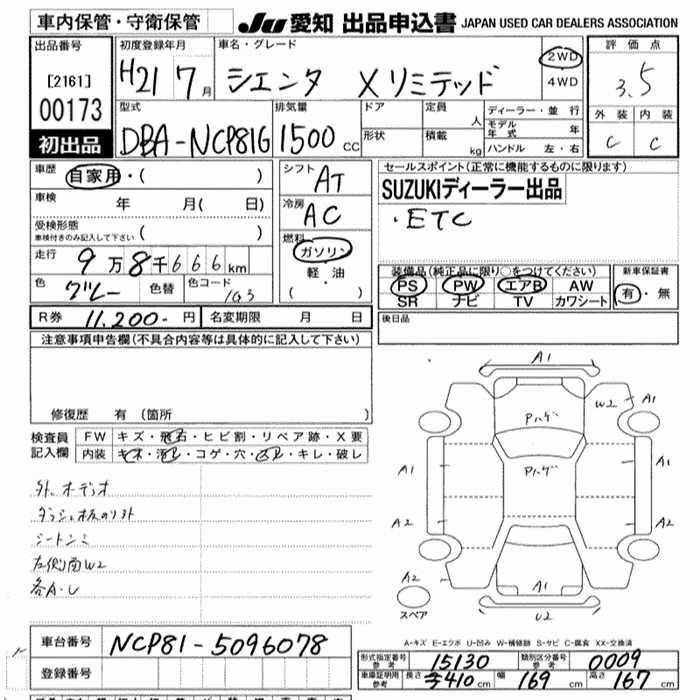 車内保管・守衛保管
JU 愛知 出品申込書 JAPAN USED CAR DEALERS ASSOCIATION
出品番号
[2161]
00173
初出品
初度登録年月
H21 7月
車名・グレード
シエンタ Xリミテッド
2WD
4WD
評価点
3.5
外装 内装
C C
型式
DBA-NCP81G
排気量
1500 CC
ドア
形状
定員 人
積載 kg
ディーラー・並行
モデル年式 年
ハンドル 左・右
車歴 自家用・( )
車検 年 月( 日)
受検形態
車検付きのみ記入して下さい ( )
走行 9万8千666km
色 グレー 色替 色コード 1G3
シフト AT
冷房 AC
燃料
ガソリン
軽・油
( )
セールスポイント(正常に機能するものに限ります)
SUZUKIディーラー出品
・ETC
装備品(純正品に限り○をつけてください)
PS PW エアB AW
SR ナビ TV カワシート
新車保証書
有・無
R券 11.200- 円 名変期限 月 日
後日品
注意事項申告欄(不具合内容等は具体的に記入して下さい)
修復歴 有 (箇所 )
検査員
記入欄
FW キズ・飛石・ヒビ割・リペア跡・X要
内装 キズ・汚レ・コゲ・穴・スレ・キレ・破レ
外。オーディオ
シートシミ
左側面W2
各A・U
A1
Pハゲ
W2 A1
Pハゲ
A1 A1
A2 A2
A2
A1
スペア
U2
A-キズ E-エクボ U-凹み W-補修跡 S-サビ C-腐食 XX-交換済
車台番号 NCP81-5096078
登録番号
形式指定番号 参考 15130 類別区分番号 参考 0009
車庫証明用 参考 長さ 410cm 幅 169cm 高さ 167cm